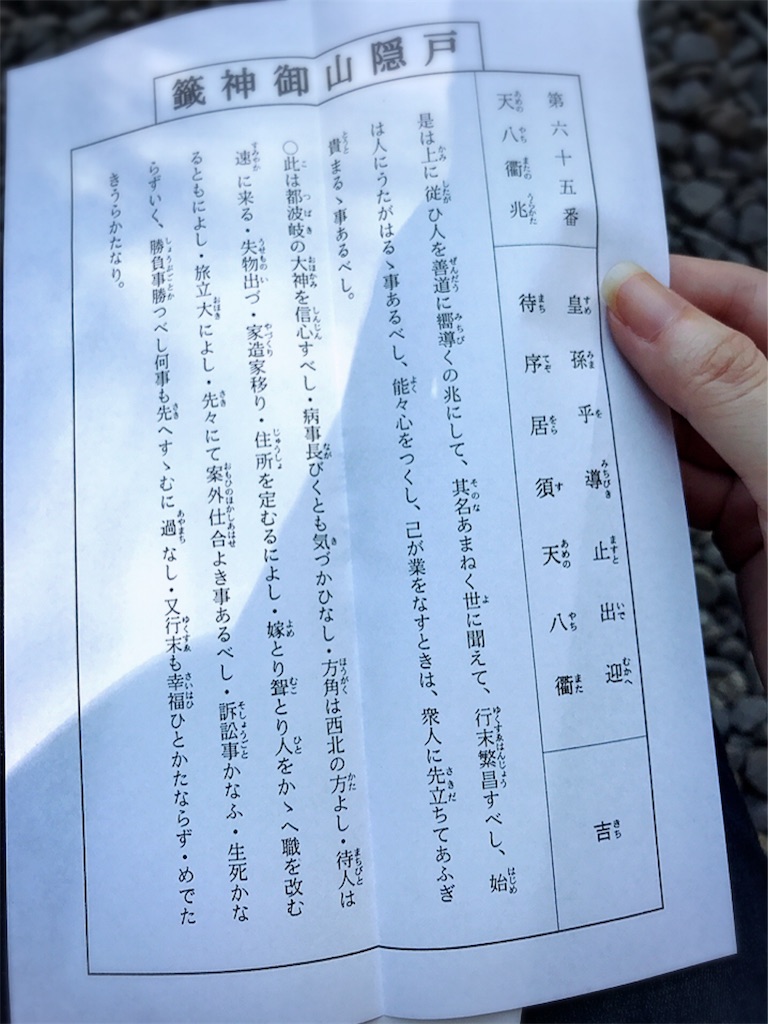 戸隠山御神籤
第六十五番
天八衢兆
皇孫乎導止出迎
待序居須天八衢
吉
是は上に従ひ人を善道に嚮導くの兆にして、其名あまねく世に聞えて、行末繁昌すべし、始
は人にうたがはるゝ事あるべし、能々心をつくし、己が業をなすときは、衆人に先立ちてあふぎ
貴まるゝ事あるべし。
〇此は都波岐の大神を信心すべし・病事長びくとも気づかひなし・方角は西北の方よし・待人は
速に来る・失物出づ・家造家移り・住所を定むるによし・嫁とり聟とり人をかゝへ職を改む
るともによし・旅立大によし・先々にて案外仕合よき事あるべし・訴訟事かなふ・生死かな
らずいく、勝負事勝つべし何事も先へすゝむに過なし・又行末も幸福ひとかたならず・めでた
きうらかたなり。